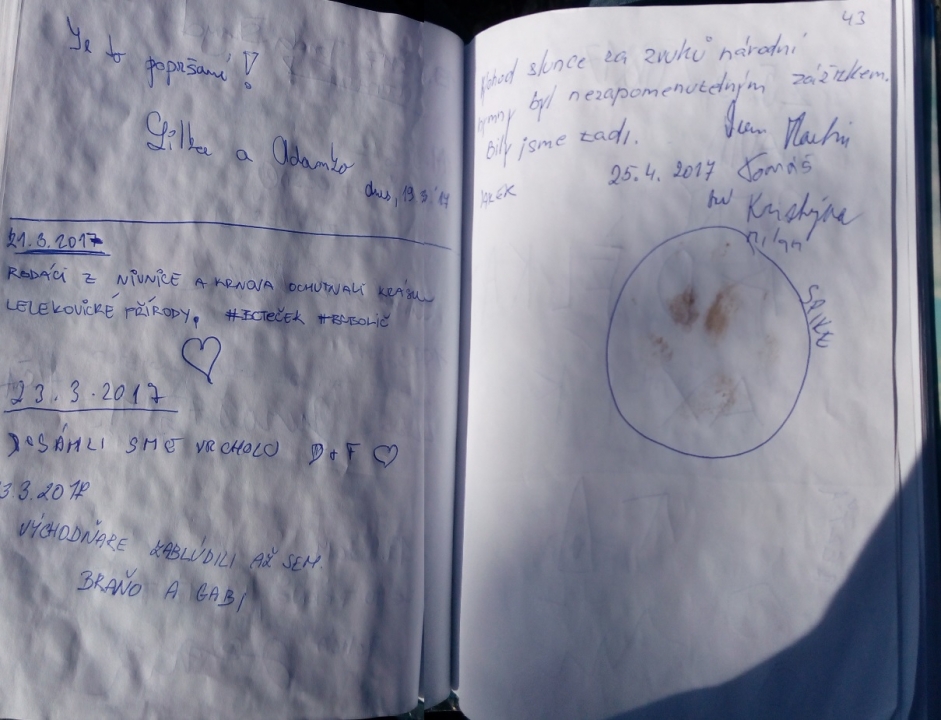 Je to
popršaní!
Lilka a Adamko
dnes, 19.3.'17
21.3.2017
RODÁCI Z NIVNICE A KRNOVA OCHUTNALI KRÁSU
LELEKOVICKÉ PŘÍRODY. #BOTEČEK
23.3.2017
DOSÁHLI SME VRCHOLO D+F
3.3.2017
VÝCHODŇARE ZABLÚDILI AŽ SEM.
BRAŇO A GABI
43
východ slunce za zvuků národní
hymny byl nezapomenutelným zážitkem.
Byly jsme tadi.
Martin
25.4.2017 Tomáš
Kristýna
milan